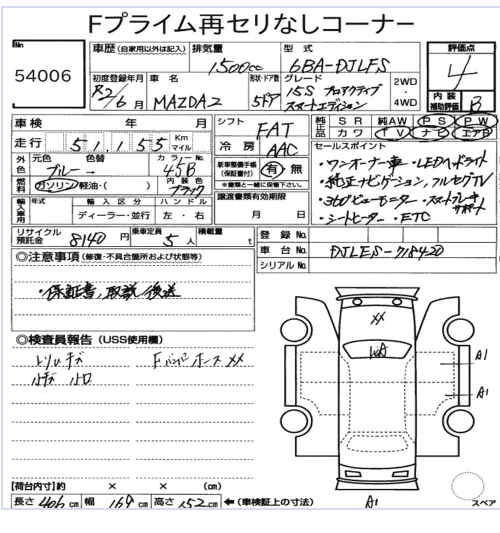 Fプライム再セリなしコーナー
No. 54006
車歴 (自家用以外は記入) 排気量 1500cc 型式 6BA-DJLFS 評価点 4
初度登録年月 R2/6月 車名 MAZDA2 形状・ドア数 5ドア グレード 15S プロアクティブ スマートエディション 2WD・4WD 内装補助評価 B
車検 年 月 シフト FAT 純正品 SR 純AW PS PW
走行 51,155 Km マイル 冷房 AAC カワ TV ナビ エアB
外色 元色 ブルー 色替 → カラーNo. 45B 新車整備手帳(保証書付) 有 無 ※書類と一緒に保管下さい。
セールスポイント
・ワンオーナー車・LEDヘッドライト
・純正ナビゲーション,フルセグTV
・360°ビューモニター・スマートブレーキサポート
・シートヒーター・ETC
燃料 ガソリン・軽油・( ) 内装色 ブラック
輸入車用 年式 輸入区分 ハンドル 譲渡書類有効期限
ディーラー・並行 左・右 月 日
リサイクル預託金 8140円 乗車定員 5人 積載量 t 登録No.
車台No. DJLFS-718420
シリアルNo.
◎注意事項 (修復・不具合箇所および状態等)
・保証書,取説後送
◎検査員報告 (USS使用欄)
小キズ
XX
A1
A1
【荷台内寸】約 × × (cm)
長さ 406cm 幅 169cm 高さ 152cm ←(車検証上の寸法) A1 スペア